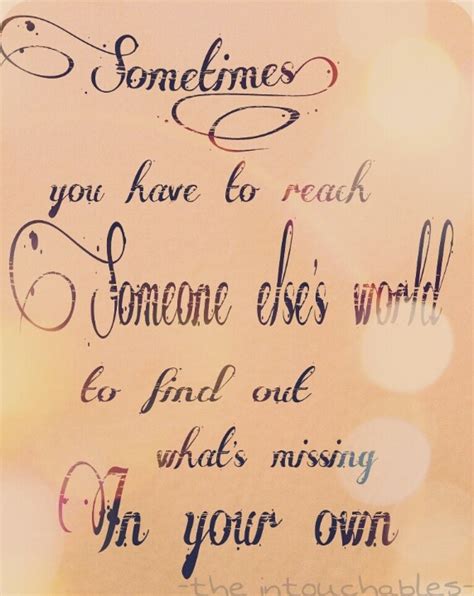 Sometimes
you have to reach
Someone else's world
to find out
what's missing
In your own
-the intouchables-